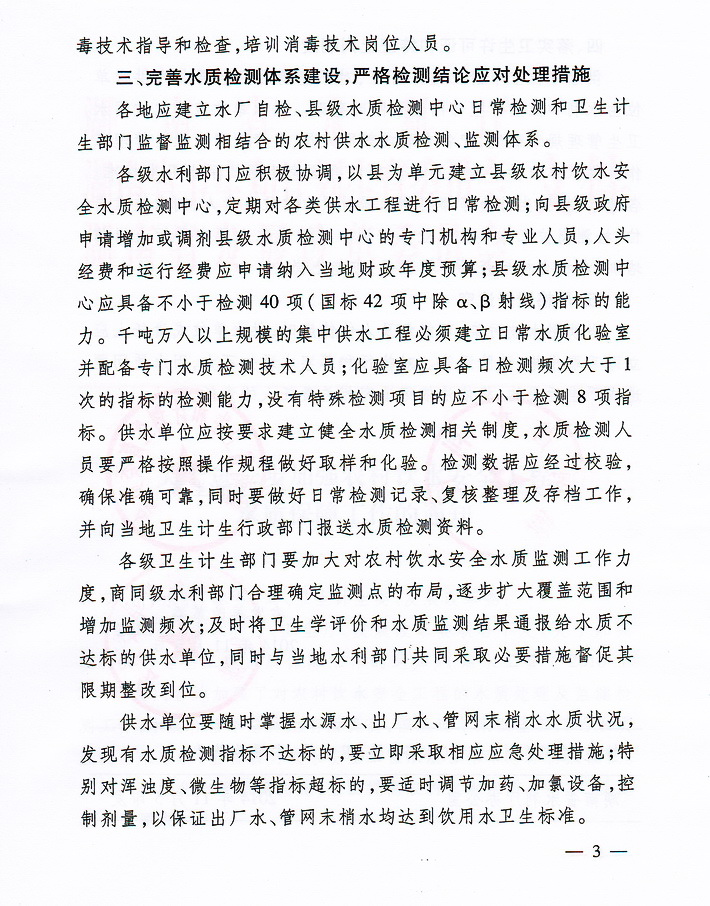 毒技术指导和检查,培训消毒技术岗位人员。
三、完善水质检测体系建设,严格检测结论应对处理措施
各地应建立水厂自检、县级水质检测中心日常检测和卫生计
生部门监督监测相结合的农村供水水质检测、监测体系。
各级水利部门应积极协调,以县为单元建立县级农村饮水安
全水质检测中心,定期对各类供水工程进行日常检测;向县级政府
申请增加或调剂县级水质检测中心的专门机构和专业人员,人头
经费和运行经费应申请纳入当地财政年度预算;县级水质检测中
心应具备不小于检测40项(国标42项中除α、β射线)指标的能
力。千吨万人以上规模的集中供水工程必须建立日常水质化验室
并配备专门水质检测技术人员;化验室应具备日检测频次大于1
次的指标的检测能力,没有特殊检测项目的应不小于检测8项指
标。供水单位应按要求建立健全水质检测相关制度,水质检测人
员要严格按照操作规程做好取样和化验。检测数据应经过校验,
确保准确可靠,同时要做好日常检测记录、复核整理及存档工作,
并向当地卫生计生行政部门报送水质检测资料。
各级卫生计生部门要加大对农村饮水安全水质监测工作力
度,商同级水利部门合理确定监测点的布局,逐步扩大覆盖范围和
增加监测频次;及时将卫生学评价和水质监测结果通报给水质不
达标的供水单位,同时与当地水利部门共同采取必要措施督促其
限期整改到位。
供水单位要随时掌握水源水、出厂水、管网末梢水水质状况,
发现有水质检测指标不达标的,要立即采取相应应急处理措施;特
别对浑浊度、微生物等指标超标的,要适时调节加药、加氯设备,控
制剂量,以保证出厂水、管网末梢水均达到饮用水卫生标准。
— 3 —